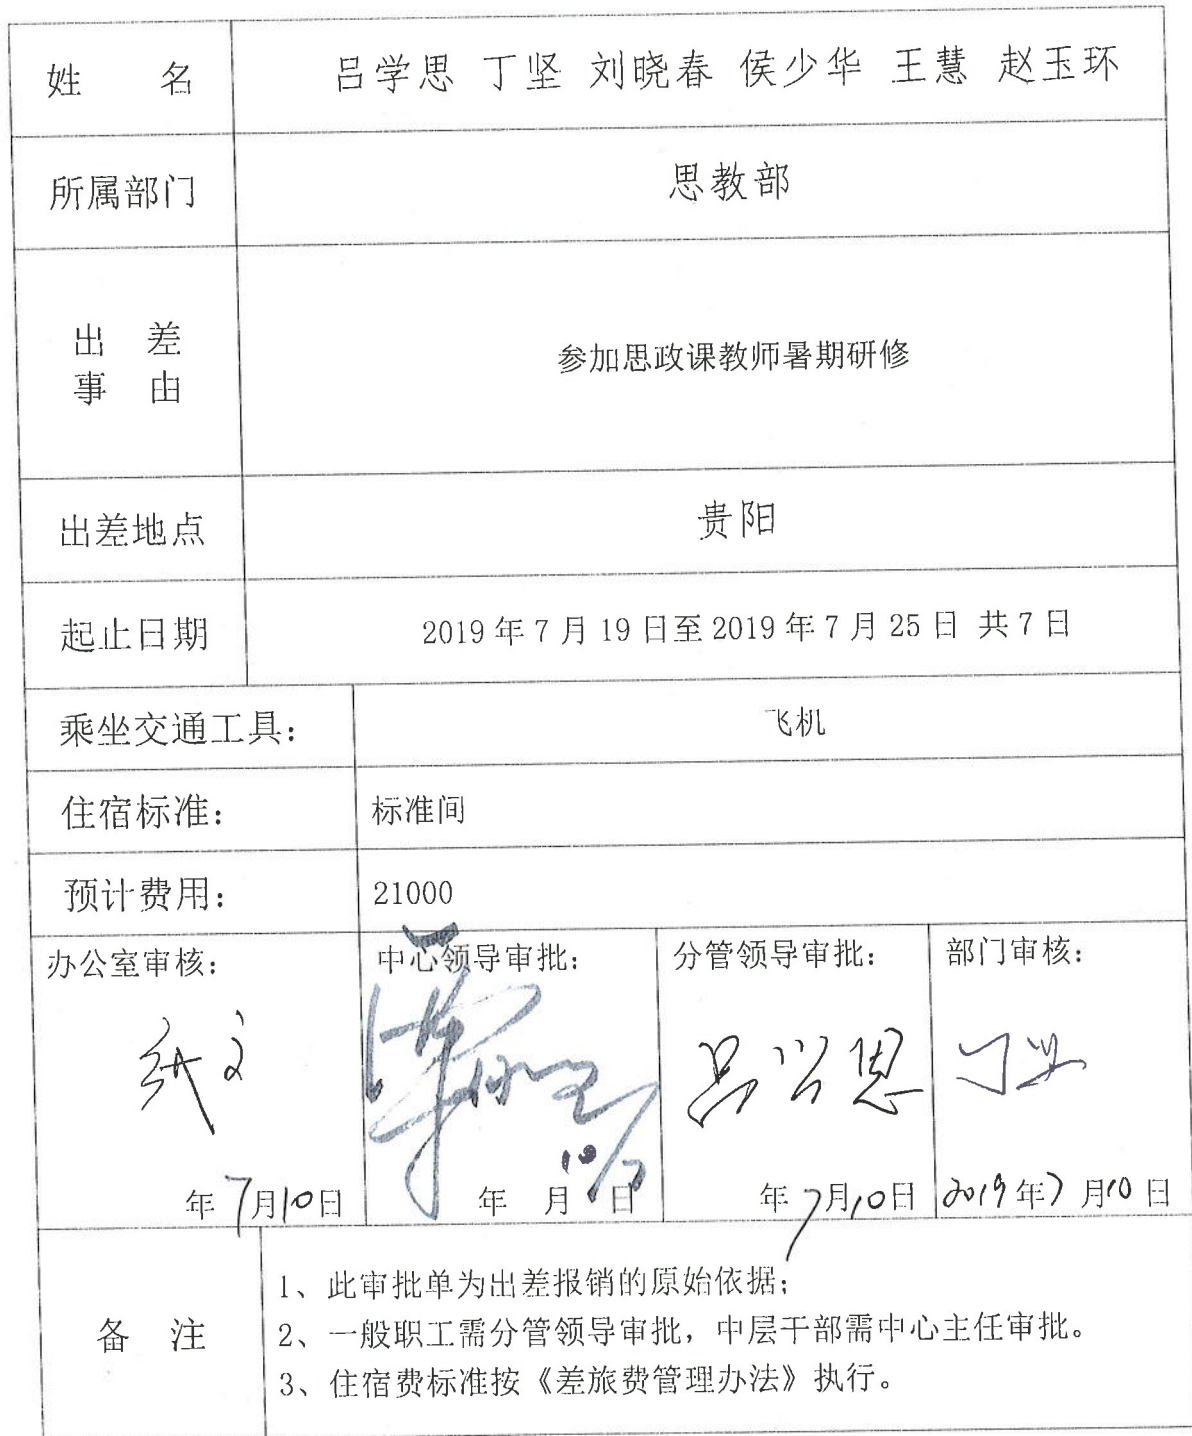 姓 名 吕学思 丁坚 刘晓春 侯少华 王慧 赵玉环
所属部门 思教部
出 差
事 由
参加思政课教师暑期研修
出差地点 贵阳
起止日期 2019年7月19日至2019年7月25日 共7日
乘坐交通工具： 飞机
住宿标准： 标准间
预计费用： 21000
办公室审核： 中心领导审批： 分管领导审批： 部门审核：
吕学思 丁坚
10/7
年7月10日 年 月 日 年7月10日 2019年7月10日
备 注
1、此审批单为出差报销的原始依据；
2、一般职工需分管领导审批，中层干部需中心主任审批。
3、住宿费标准按《差旅费管理办法》执行。